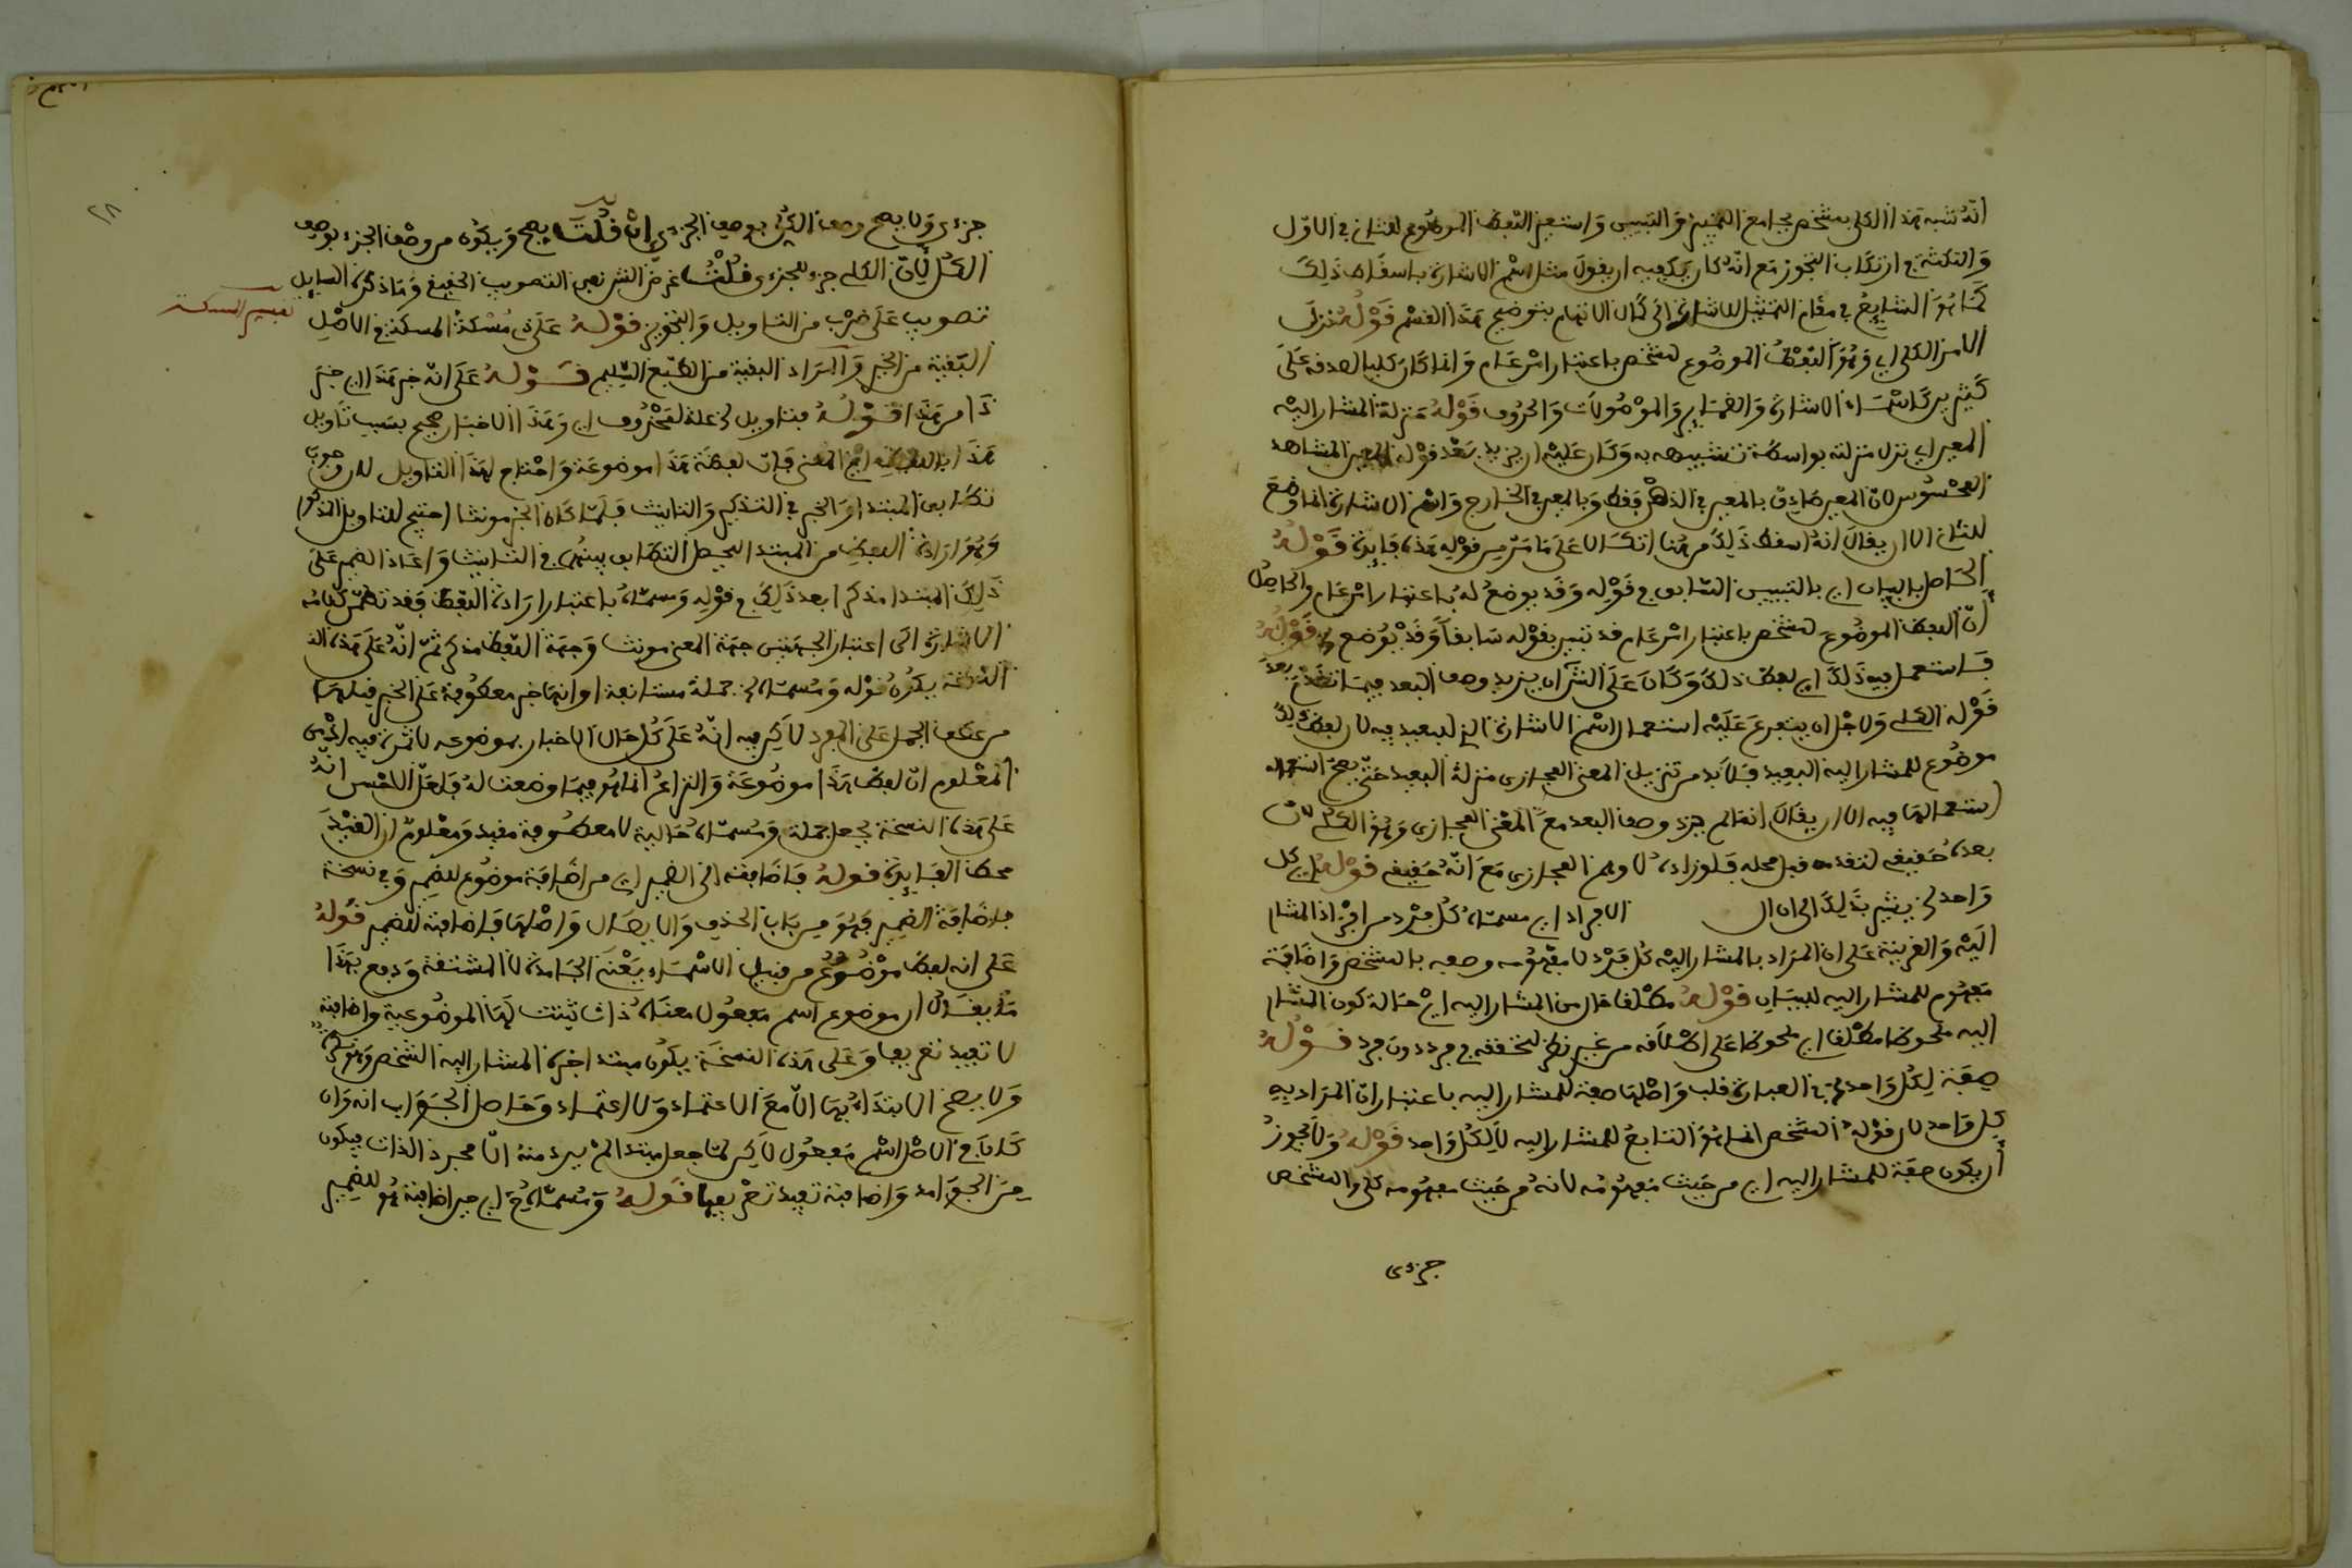 انه شبه هذا الكلي بمشخص بجامع التمييز والتبيين واستعير اللفظ الموضوع للثاني في الاول
والنكتة في ارتكاب التجوز مع انه كان يكفيه ان يقول مثل اسم الاشارة باسقاط ذلك
كما هو الشايع في مقام التمثيل للاشارة الى كمال الاتهام بتوضيح هذا القسم قوله نزل
الامر الكلي اي وهو اللفظ الموضوع لمشخص باعتبار امر عام وانما كان كليا لصدقه على
كثيرين كاسماء الاشارة والضماير والموصولات والحروف قوله منزلة المشار اليه
المعين اي نزل منزلته بواسطة تشبيهه به وكان عليه ان يزيد بعد قوله المعين المشاهد
المحسوس لان المعين صادق بالمعين في الذهن فقط وبالمعين في الخارج واسم الاشارة انما وضع
للثاني الا ان يقال انه اسقط ذلك من هنا اتكالا على ما مر من قوله هذه فايدة قوله
الحاصل بالبيان اي بالتبيين السابق في قوله وقد يوضع له باعتبار امر عام والحاصل
ان اللفظ الموضوع لمشخص باعتبار امر عام قد تبين بقوله سابقا وقد يوضع قوله
فاستعمل فيه ذلك اي لفظ ذلك وكان على الش ان يزيد وصف البعد فيما تقدم بعد
قوله الكلي ولاجل ان يتفرع عليه استعمال اسم الاشارة الذي للبعيد فيه لان لفظ ذلك
موضوع للمشار اليه البعيد فلا بد من تنزيل المعنى المجازي منزلة البعيد حتى يصح
استعمالها فيه الا ان يقال انما لم يزد وصف البعد مع المعنى المجازي وهو الكلي لان
بعده حقيقي لتقدمه قبل محله فلو زاده لاوهم المجازي مع انه حقيقي قوله اي كل
واحد لم يشر بذلك الى ان ال الافراد اي مسماه كل فرد من افراد المشار
اليه والقرينة على ان المراد بالمشار اليه كل فرد لا مفهومه وصفه بالمشخص واضافة
مفهوم للمشار اليه للبيان قوله مطلقا حال من المشار اليه اي حالة كون المشار
اليه ملحوظا مطلقا اي ملحوظا على اطلاقه من غير نظر لتحققه في فرد دون فرد قوله
صفة لكل واحد في العبارة قلب واصلها صفة للمشار اليه باعتبار ان المراد به
كل واحد لان قوله المشخص انما هو التابع للمشار اليه لا لكل واحد قوله ولا يجوز
ان يكون صفة للمشار اليه اي من حيث مفهومه لانه من حيث مفهومه كلي والمشخص
جزءى
جزءي ولا يصح وصف الكلي بوصف الجزءي ان قلت يصح ويكون من وصف الجزء بوصف
الكل لان الكلي جزء للجزءي قلت غرض الش نفي التصويب الحقيقي وما ذكره السايل
تصويب على ضرب من التاويل والتجوز قوله على ذي مسكة المسكة في الاصل
تفسير المسكة
البقية من الخير والمراد البقية من الطبع السليم قوله على انه خبر هذا اي خبر
ذا من هذا قوله بتاويل علة لمحذوف اي وهذا الاخبار صحيح بسبب تاويل
هذا باللفظة اي المعنى فان لفظة هذا موضوعة واحتاج لهذا التاويل لوجوب
تطابق المبتدا والخبر في التذكير والتانيث فلما كان الخبر مونثا احتيج للتاويل المذكور
وهو ارادة اللفظة من المبتدا ليحصل التطابق بينهما في التانيث واعاد الضمير على
ذلك المبتدا مذكرا بعد ذلك في قوله ومسماه باعتبار ارادة اللفظ فقد تضمن كلامه
الاشارة الى اعتبار الجهتين جهة المعنى مونث وجهة اللفظ مذكر ثم انه على هذه
النسخة يكون قوله ومسماه جملة مستانفة او انها خبر معطوفة على الخبر قبلها
من عطف الجمل على المفرد لاكن فيه انه على كل حال الاخبار بموضوعه لا ثمرة فيه اذ من
المعلوم ان لفظ هذا موضوعة والنزاع انما هو فيما وضعت له فلعل الاحسن انه
على هذه النسخة يجعل جملة ومسماه حالية لا معطوفة مفيد ومعلوم ان القيد
محط الفايدة قوله فاضافته الى الضمير اي من اضافة موضوع للضمير وفي نسخة
فاضافة الضمير فهو من باب الحذف والايصال واصلها فاضافته للضمير قوله
على انه لفظ موضوع من قبيل الاسماء يعني الجامدة لا المشتقة ودفع بهذا
ما يقال ان موضوع اسم مفعول معناه ذات ثبتت لها الموضوعية واضافته
لا تفيد تعريفا وعلى هذه النسخة يكون مبتدا خبره المشار اليه المشخص
ولا يصح الابتداء بها الا مع الاعتماد ولا اعتماد وحاصل الجواب انه وان
كان في الاصل اسم مفعول لاكن لما جعل مبتدا لم يرد منه الا مجرد الذات فيكون
من الجوامد واضافته تفيد تعريفها قوله ومسماه اي حين اضافته هو للضمير